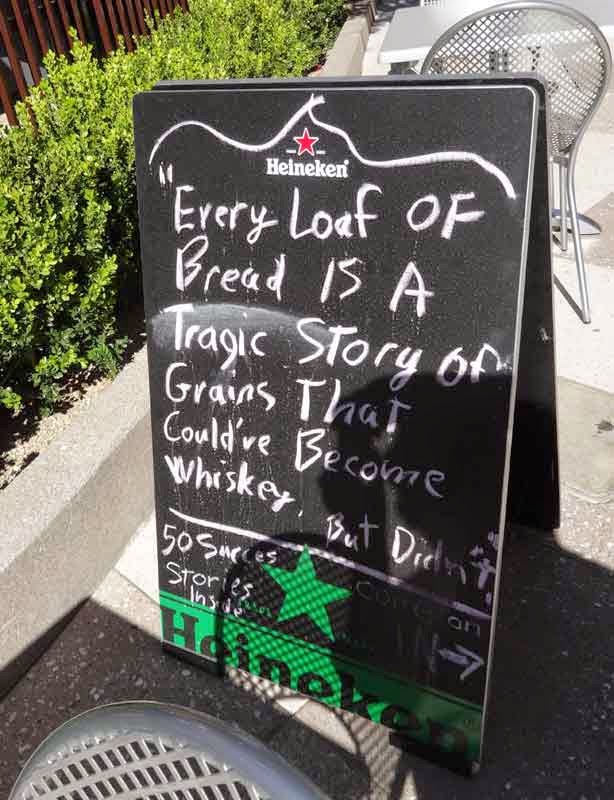 Heineken
"Every Loaf OF
Bread IS A
Tragic Story of
Grains That
Could've Become
Whiskey, But Didn't"
50 Succes
Stories
Inside
Come on
IN →
Heineken